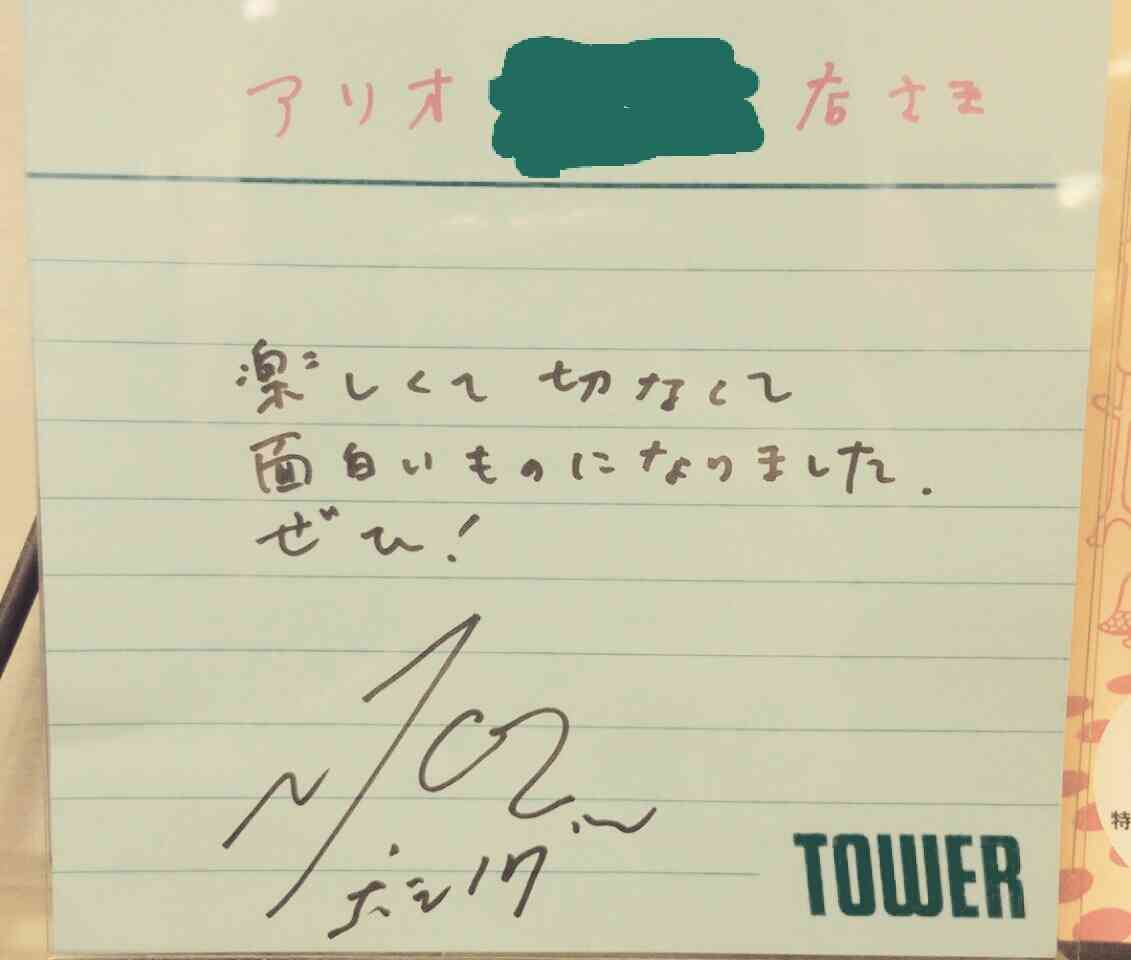 アリオ 店さま
楽しくて 切なくて
面白いものになりました.
ぜひ!
TOWER
特